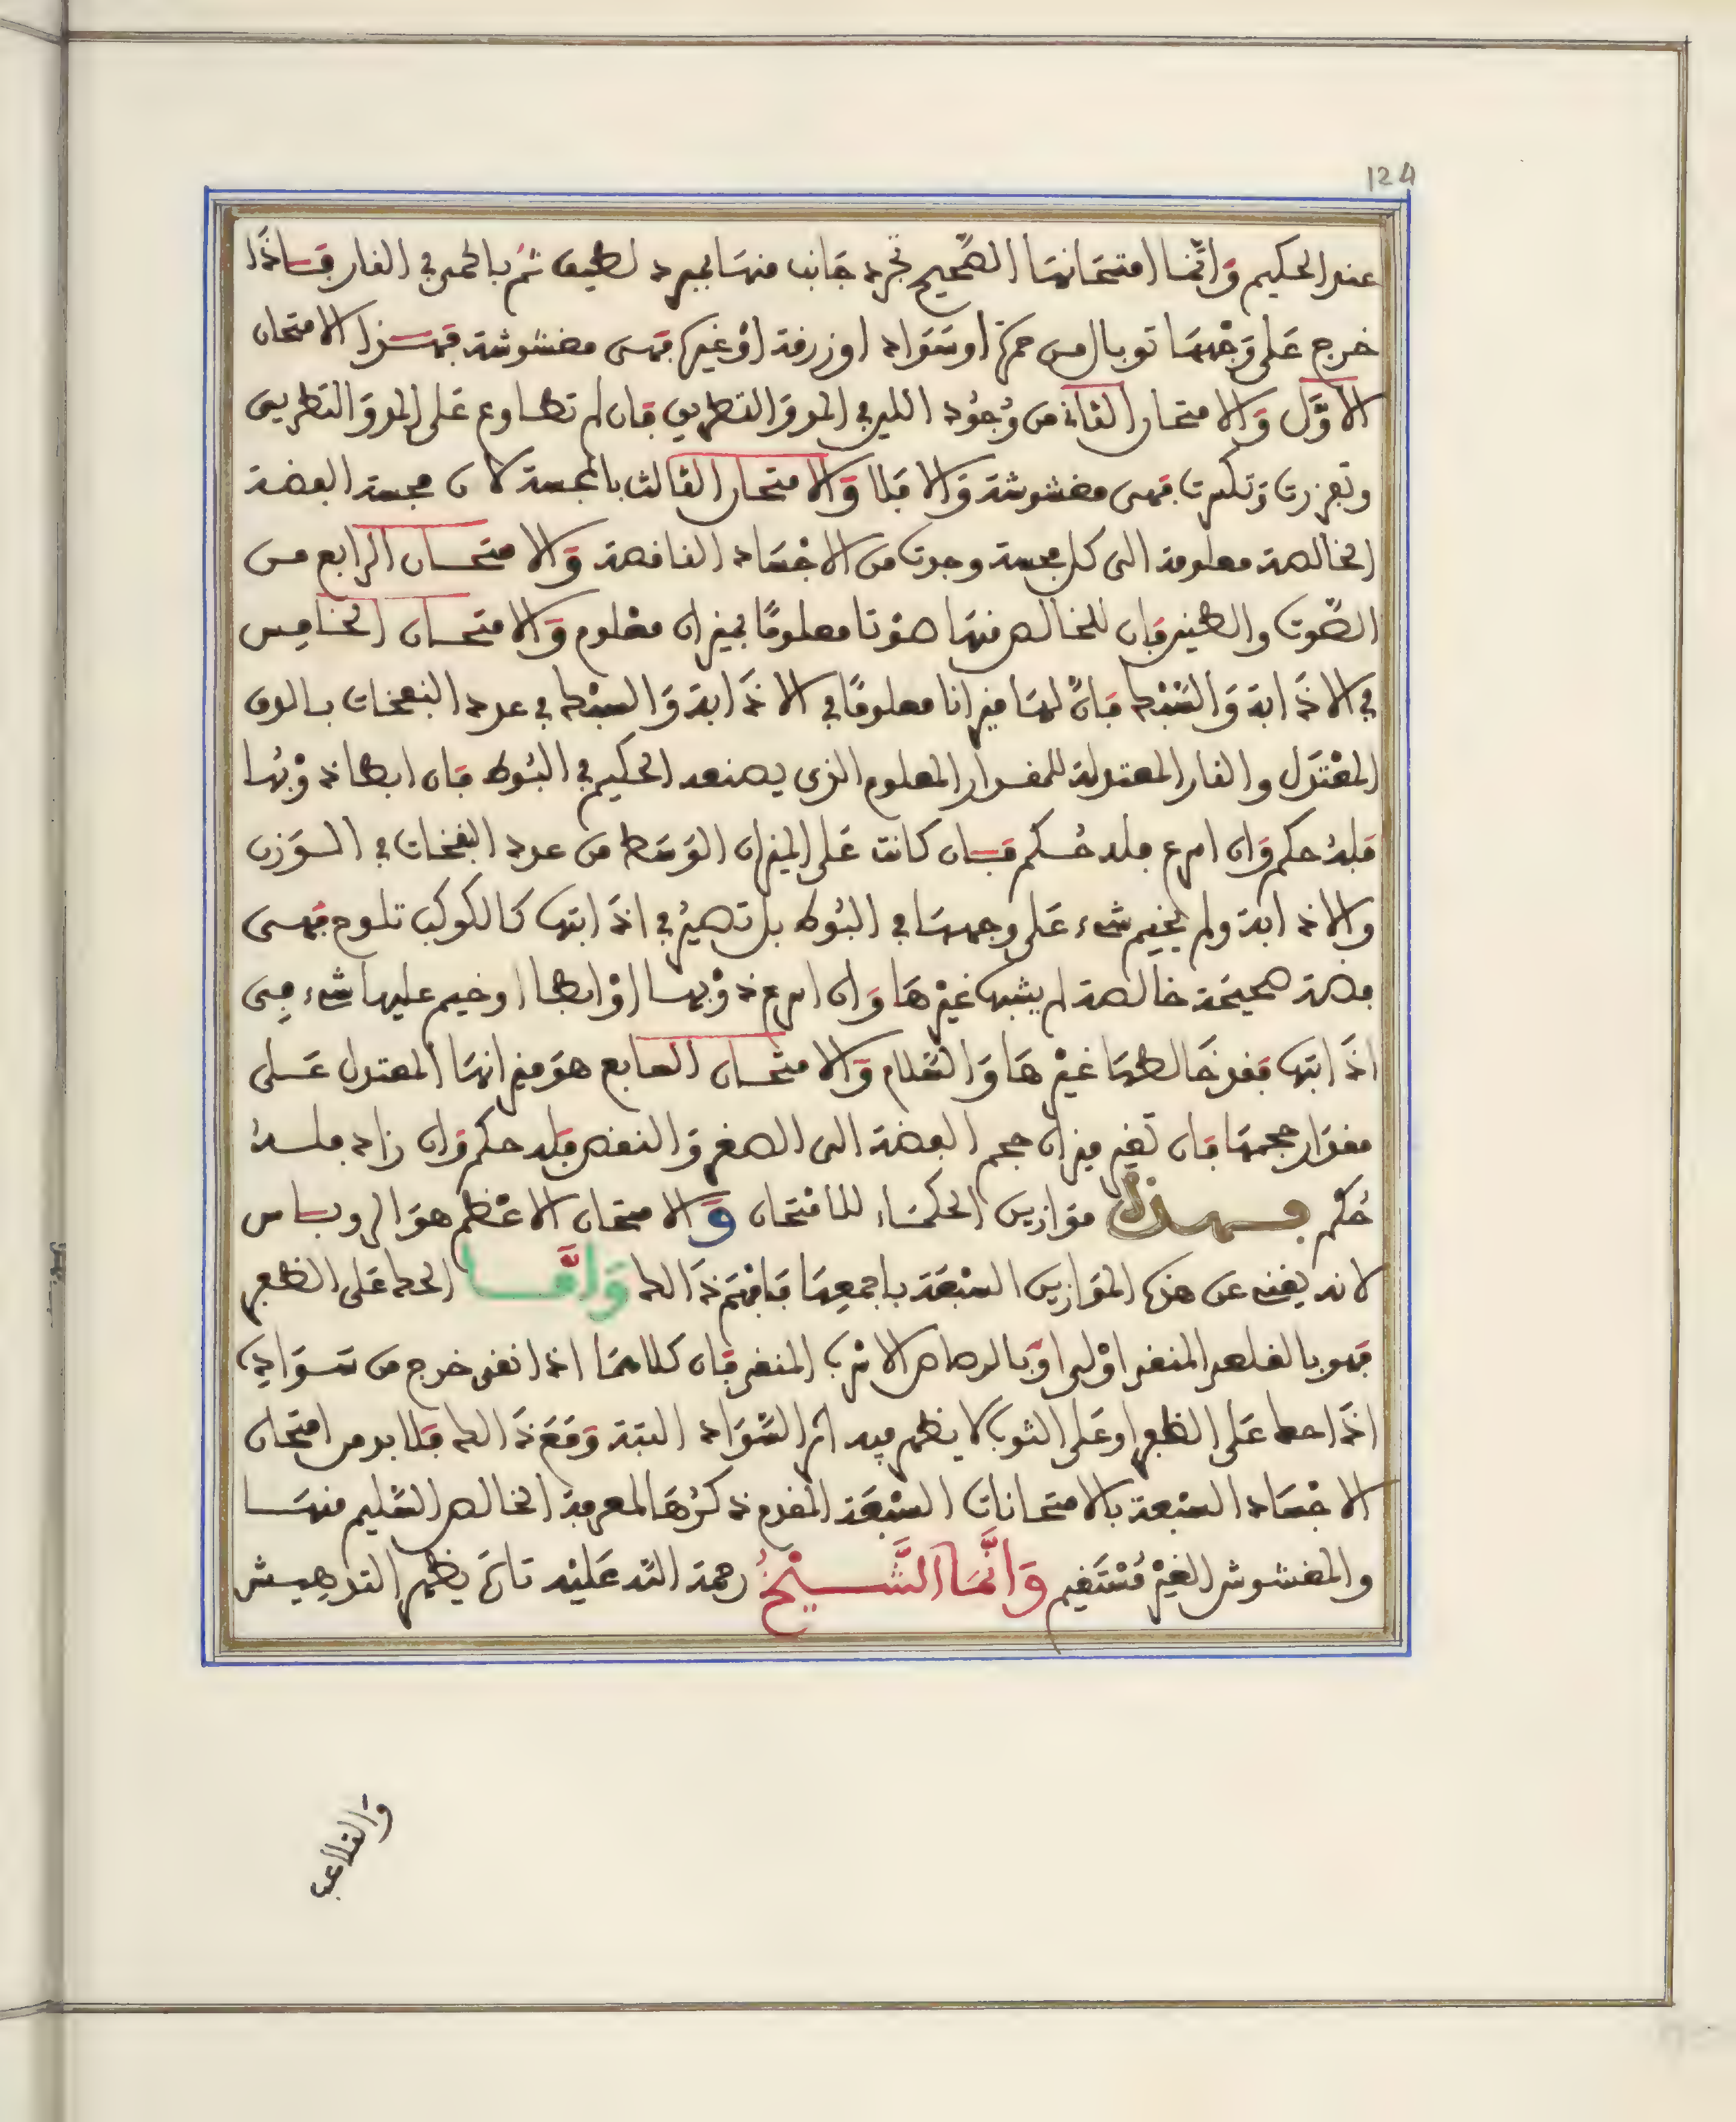 124
عند الحكيم وَانّمَا امتحَانهَا الصّحيح تجرد جَانب منهَا بمبرد لطيف ثم بالحمى في النار فَاذَا
خرج عَلى وَجْههَا توبال من حمرَة اوسَوَاد اوزرقة اوْغيرها فهي مغشوشة فَهَذا الامتحان
الاوَّل وَالامتحان الثاني من وُجُود اللين في المد وَالتطريق فَان لم تطاوع على المد وَالتطريق
وتفزرت وَتكسرت فهي مغشوشة وَالا فلا وَالامتحان الثالث بالمجسة لان مجسة الفضة
الخالصة معلومة الى كل مجسة وجدت من الاجْسَاد الناقصة وَالامتحان الرابع من
الصّوت والطنين فان للخالص منهَا صَوْتا معلومًا بميزان مَعْلوم وَالامتحان الخامِس
في الاذَابة وَالسَّبْك فَانّ لهَا ميزانا معلومًا في الاذَابة وَالسبْك في عدد النفخات بالزق
المعْتدَل والنار المعتدلة للمقدار المعلوم الذي يصنعه الحكيم في البُوط فان ابطا ذوْبُها
فَلهُ حكم وَان اسرع فله حُكم فَان كانت عَلى الميزان الوَسَط من عدد النفخات في الوَزن
والاذابة ولم يخيم شيء عَلى وجههَا في البُوط بل تصيرُ في اذَابتها كالكوكب تلوح فَهي
فضة صحيحَة خالصة لم يشبها غيْرهَا وَان اسرع ذوْبها اوْ ابطا اوخيم عليها شيء مِن
اذَابتها فَقد خَالطهَا غيْرهَا وَالسَّلام وَالامتحان السابع هوَ ميزانهَا المعتدل عَلى
مقدَار حجمهَا فَان تغير ميزان حجم الفضة الى الصغر وَالنقص فله حكم وَان زاد فلهُ
حُكم فهذه موَازين الحكمَاء للامْتحان وَالامتحان الاعْظم هوَ الروباس
لانه يغني عن هذه الموَازين السَّبْعَة باجمعِهَا فَافْهَم ذَالك وَامَّا الحك عَلى الظفر
فَهو بالقلعي المنقى اوْلى اوْ بالرصاص الاسرب المنقى فَان كلاهمَا اذا نقى خرج من سَوَاده
اذَا حك عَلى الظفر اوعَلى الثوب لا يظهر فيه اثر السَّوَاد البتة وَمَعَ ذَالك فَلا بد من امتحان
الاجْسَاد السبعة بالامتحانات السّبْعَة المقدم ذكرُهَا لمعرفة الخالص السَّليم منهَا
والمغشوش الغيْر مُسْتَقيم وَانَّمَا الشَّيْخُ رحمة الله عَليْه تارة يظهر التدهيش
وَالتلاعب